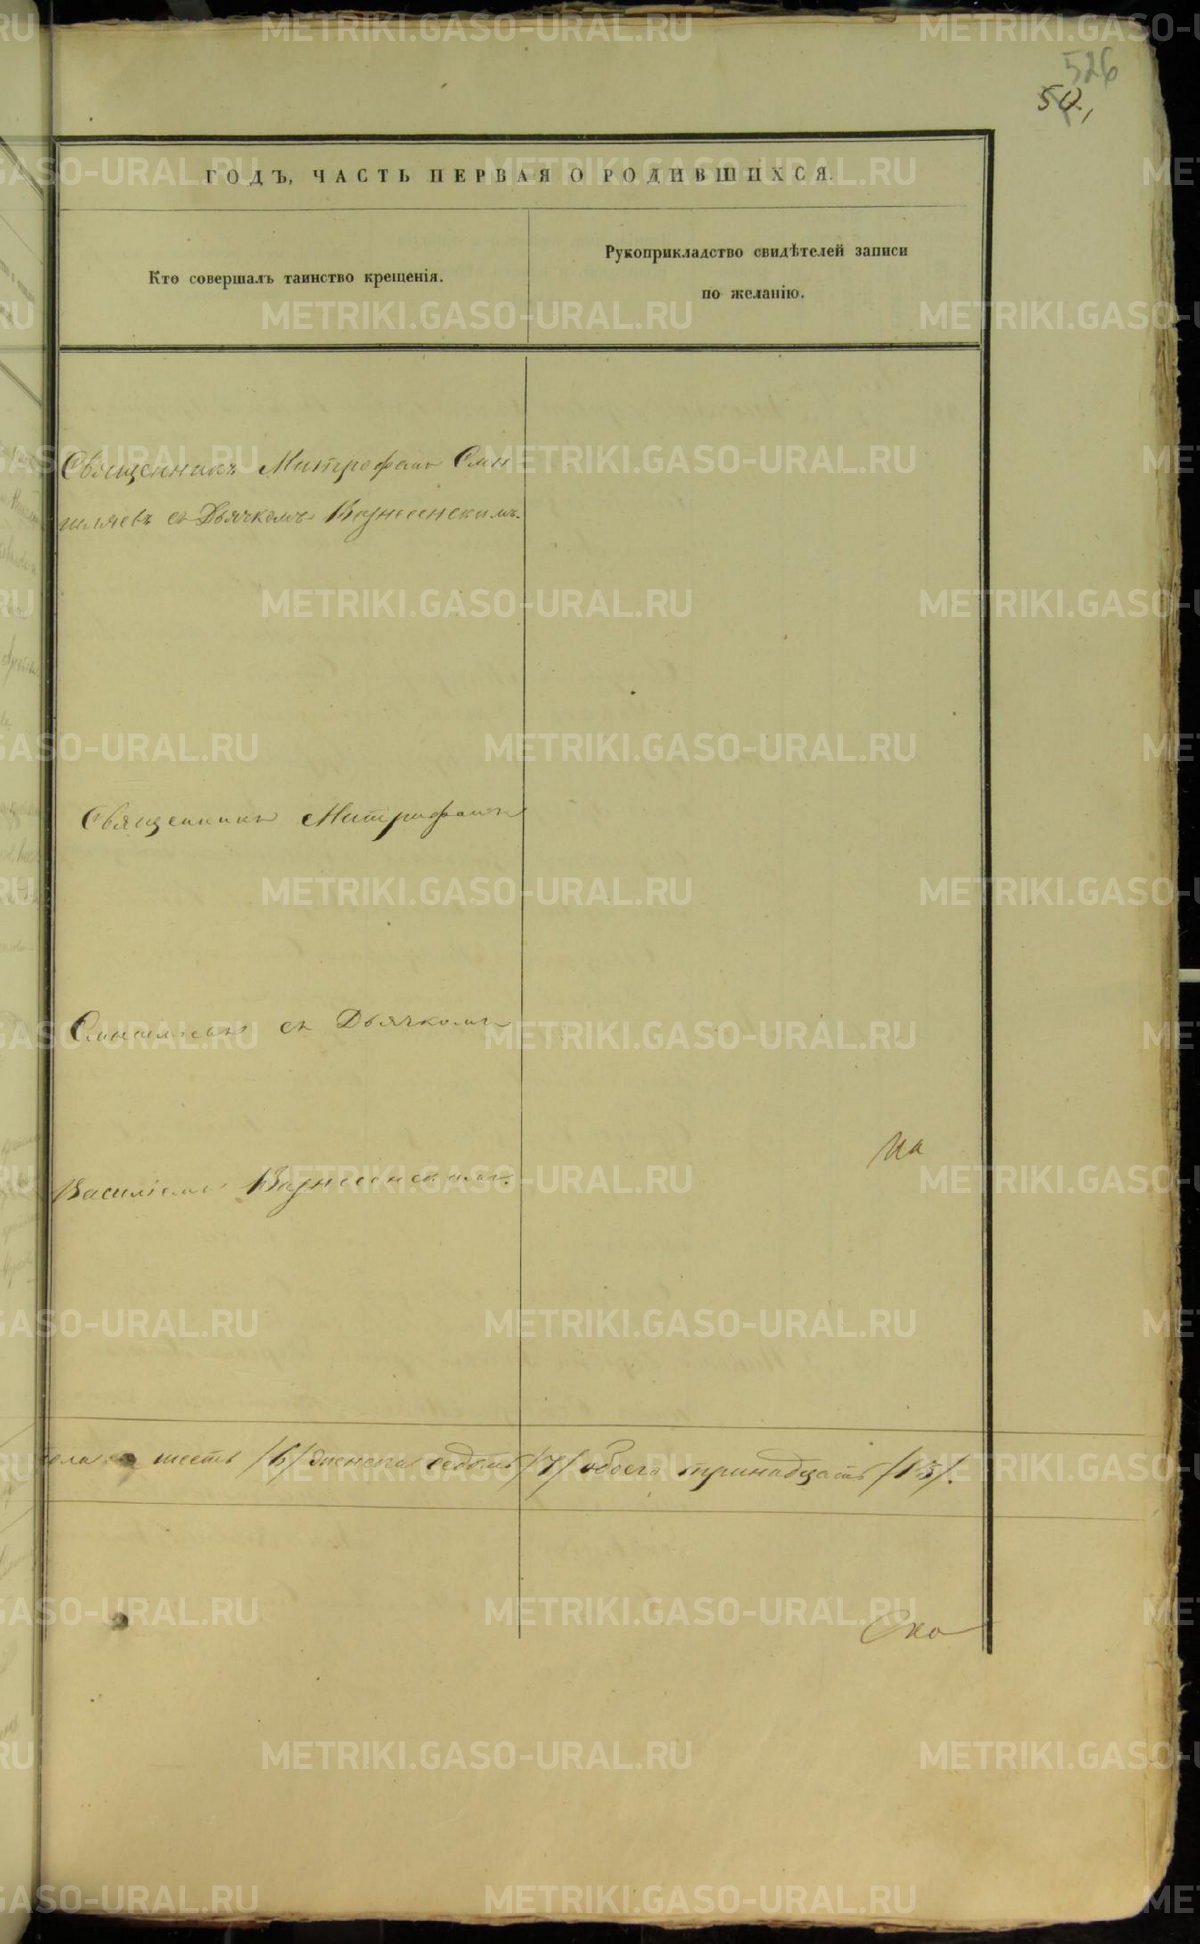 526
50.
ГОДЪ, ЧАСТЬ ПЕРВАЯ О РОДИВШИХСЯ.
Кто совершалъ таинство крещенія.
Рукоприкладство свидѣтелей записи
по желанію.
Священникъ Митрофанъ Сми
шляевъ съ Дьячкомъ Вознесенскимъ.
Священникъ Митрофанъ
Смышляевъ съ Дьячкомъ
Василіемъ Вознесенскимъ.
На
пола шесть /6/ женска седмь /7/ обоего тринадцать /13/.
Ско
METRIKI.GASO-URAL.RU